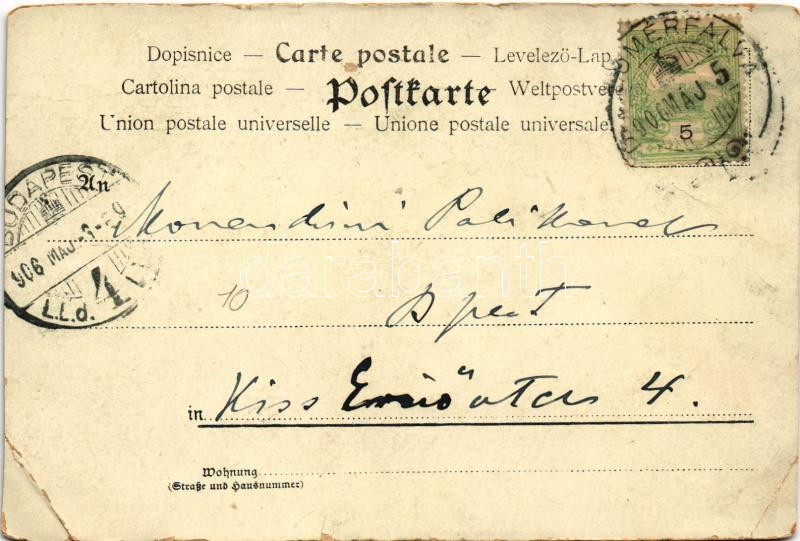 Dopisnice — Carte postale — Levelező-Lap
Cartolina postale — Postkarte — Weltpostve
Union postale universelle — Unione postale universale
MERFALVA
906 MÁJ 5
5
BUDAPEST
906 MÁJ
4
L.L.d.
An
10
Bpest
in Kiss Ernő utca 4.
Wohnung
(Straße und Hausnummer)
darabanth